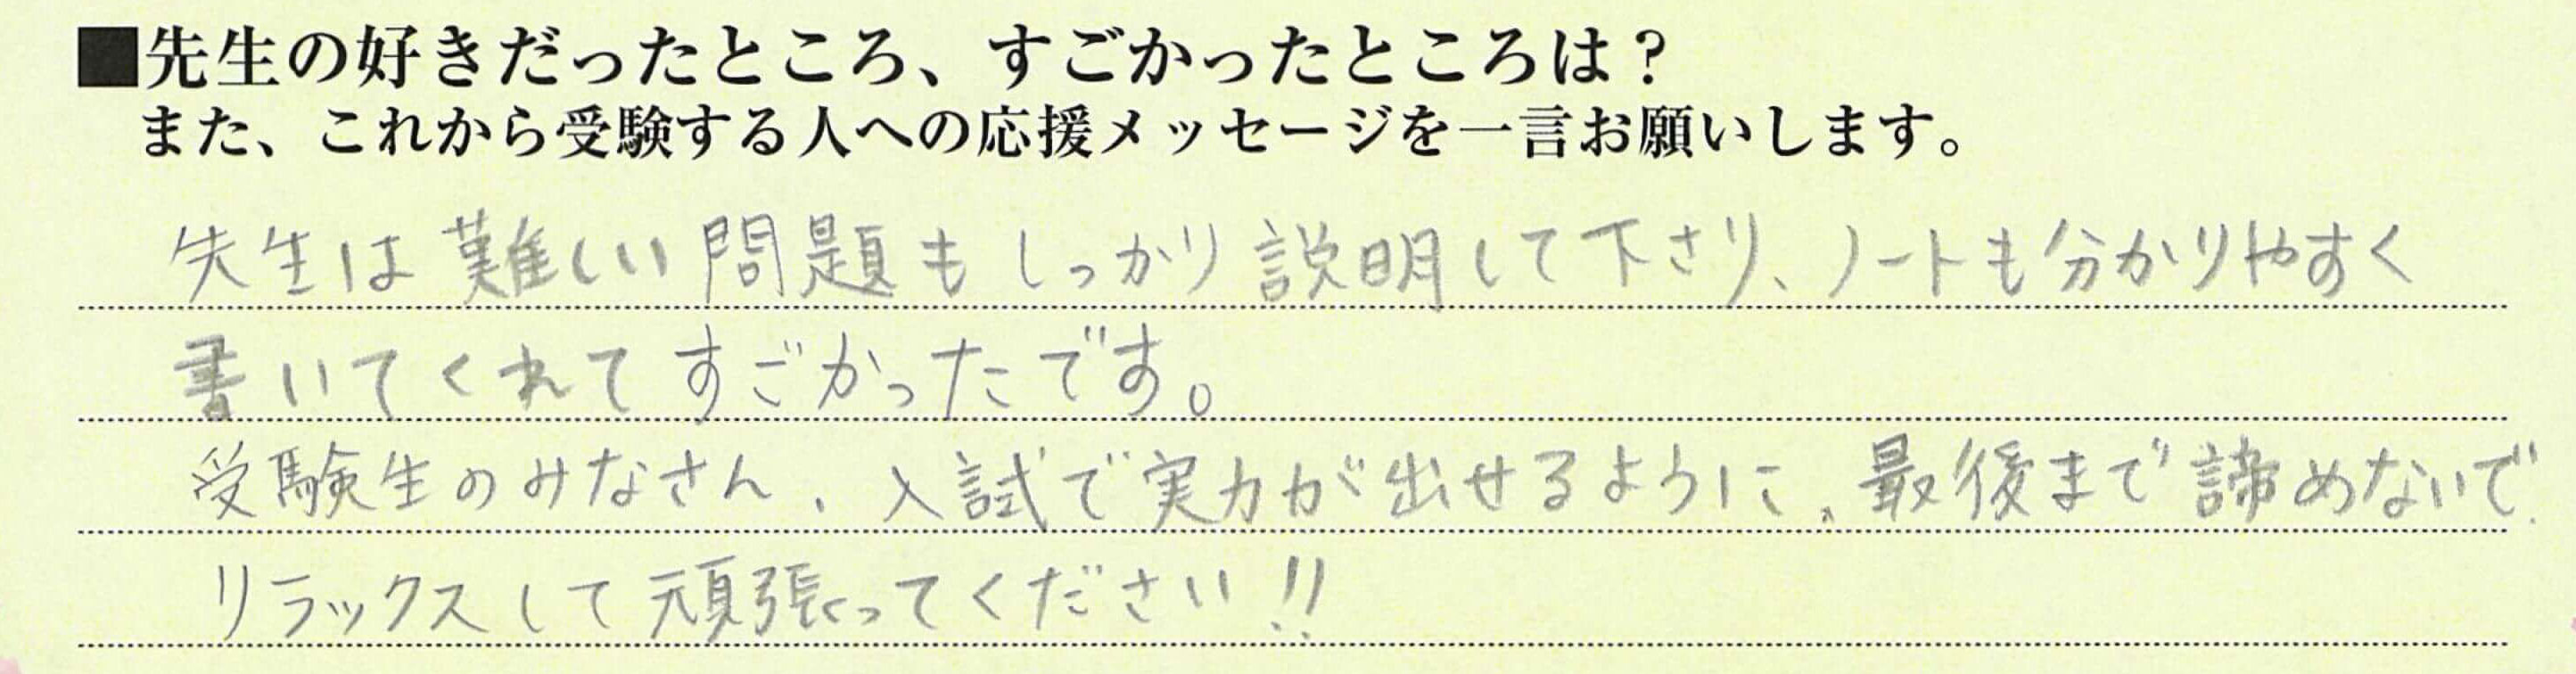 ■先生の好きだったところ、すごかったところは？
また、これから受験する人への応援メッセージを一言お願いします。
先生は難しい問題もしっかり説明して下さり、ノートも分かりやすく
書いてくれてすごかったです。
受験生のみなさん、入試で実力が出せるように、最後まで諦めないで
リラックスして頑張ってください!!